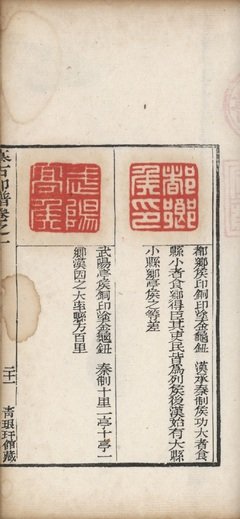 都鄉侯印
都鄉侯印銅印塗金龜鈕 漢承秦制侯功大者食
縣小者食鄉得臣其吏民皆為列侯後漢始有大縣
小縣鄉亭侯之等差
武陽亭侯
武陽亭侯銅印塗金龜鈕 秦制十里一亭十亭一
鄉漢因之大率縣方百里
集古印譜卷之一
二十一
青琅玕館藏